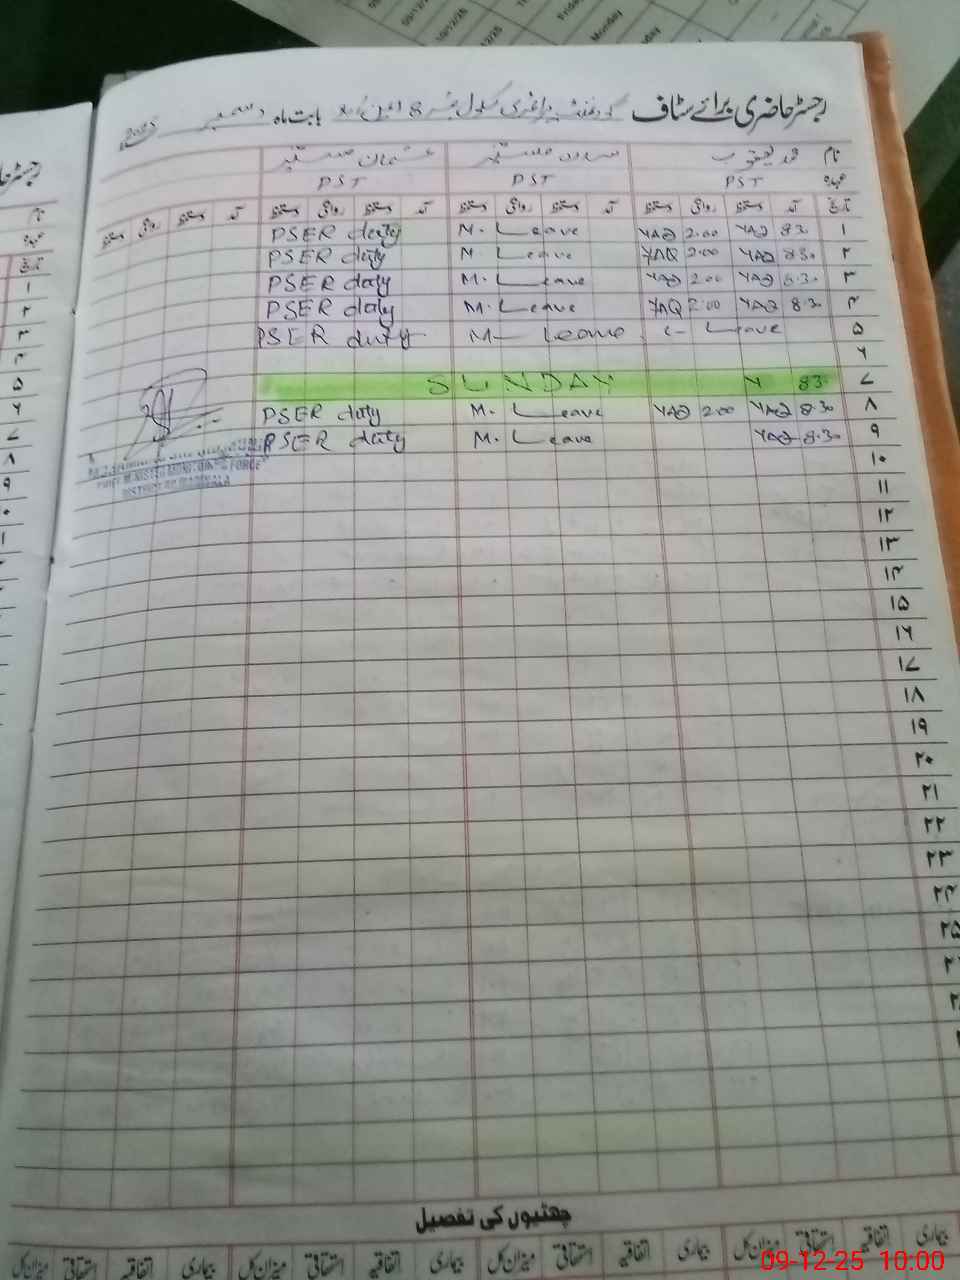 رجسٹر حاضری برائے سٹاف گورنمنٹ پرائمری سکول نمبر 8 بابت ماہ دسمبر 2025
نام محمد یعقوب
عہدہ PST PST PST
تاریخ آمد دستخط روانگی دستخط آمد دستخط روانگی دستخط آمد دستخط روانگی دستخط آمد دستخط روانگی دستخط
۱ 8.30 YAQ 2.00 YAQ M. Leave PSER duty
۲ 8.30 YAQ 2.00 YAQ M. Leave PSER duty
۳ 8.30 YAQ 2.00 YAQ M. Leave PSER duty
۴ 8.30 YAQ 2.00 YAQ M. Leave PSER duty
۵ L- Leave M- Leave PSER duty
۶
۷ 83 Y SUNDAY
۸ 8.30 YAQ 2.00 YAQ M. Leave PSER duty
۹ 8.30 YAQ M. Leave PSER duty
۱۰
۱۱
۱۲
۱۳
۱۴
۱۵
۱۶
۱۷
۱۸
۱۹
۲۰
۲۱
۲۲
۲۳
۲۴
۲۵
چھٹیوں کی تفصیل
بیماری اتفاقیہ استحقاقی میزان کل بیماری اتفاقیہ استحقاقی میزان کل بیماری اتفاقیہ استحقاقی میزان کل بیماری اتفاقیہ استحقاقی میزان کل
09-12-25 10:00